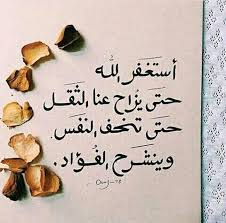 أستغفر الله
حتى يزاح عنا الثقل
حتى تخف النفس
وينشرح الفؤاد.